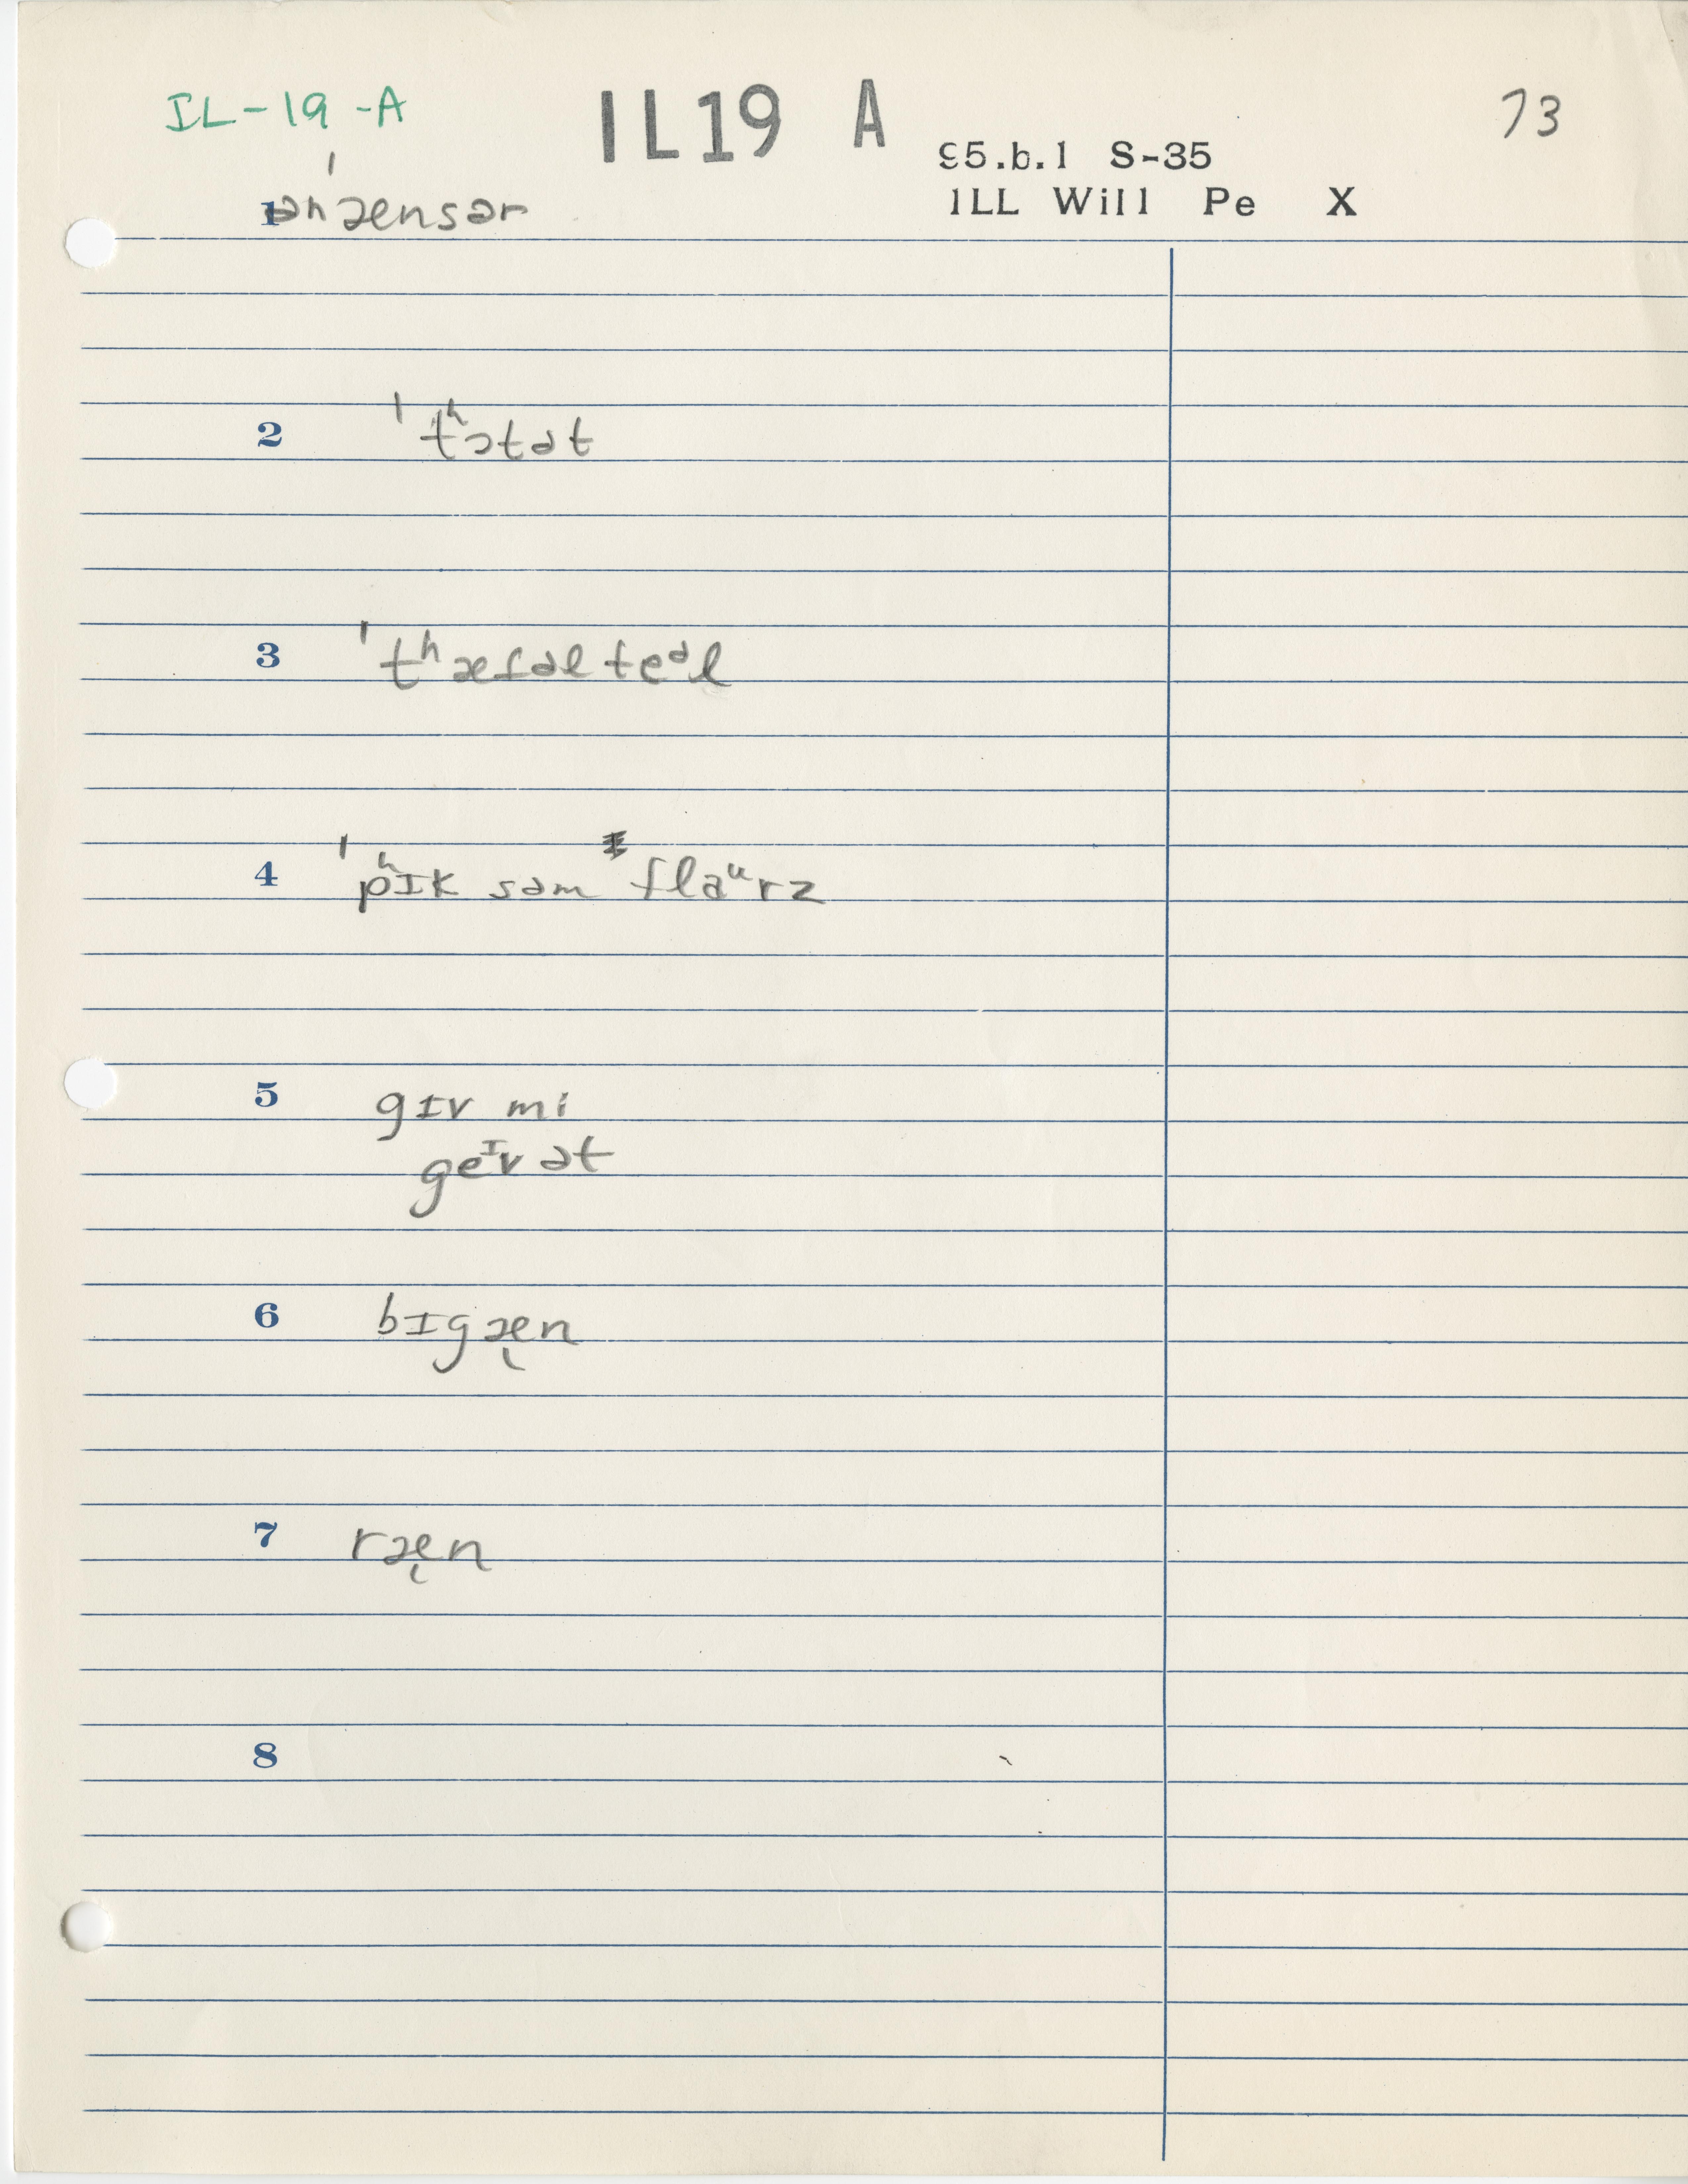 IL-19-A
IL19 A
73
95.b.1 S-35
ILL Will Pe X
1 ən'ænsər
2 'tʰɔtət
3 'tʰæfəlteᵊl
4 'pʰɪk səm flaᵘrz
5 gɪv mi
geᶦv ət
6 bɪgæ̨n
7 ræ̨n
8